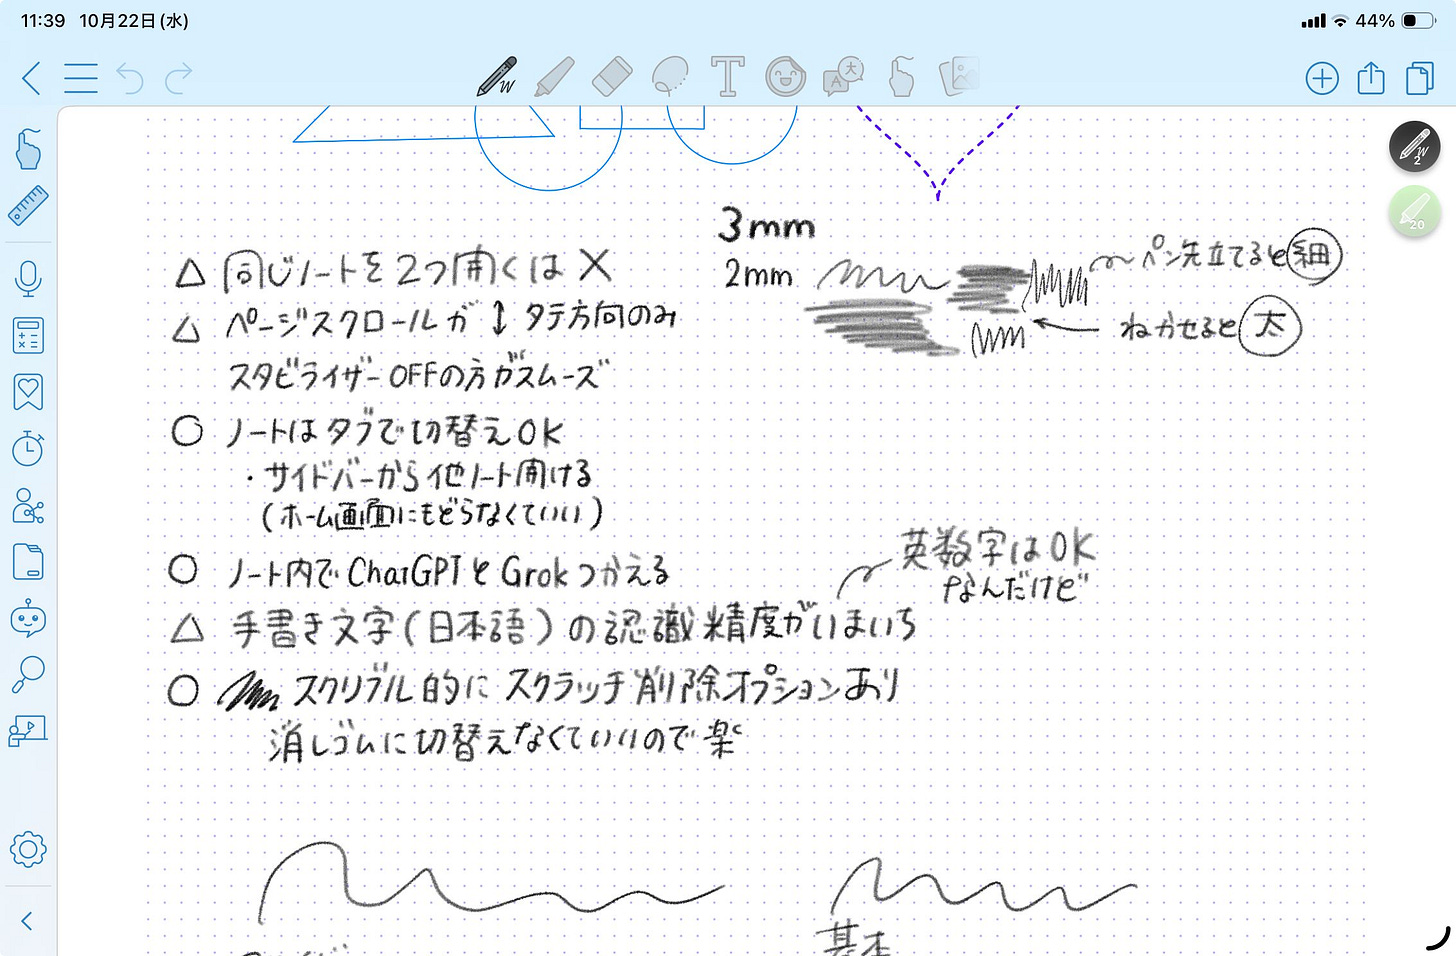 11:39 10月22日(水) 44%
W
T
A 大
W
2
20
3mm
2mm
ペン先立てると細
ねかせると太
△ 同じノートを2つ開くは×
△ ページスクロールが↕タテ方向のみ
スタビライザーOFFの方がスムーズ
○ ノートはタブで切替えOK
・サイドバーから他ノート開ける
(ホーム画面にもどらなくていい)
○ ノート内でChatGPTとGrokつかえる
英数字はOK
なんだけど
△ 手書き文字(日本語)の認識精度がいまいち
○ スクリブル的にスクラッチ削除オプションあり
消しゴムに切替えなくていいので楽
基本